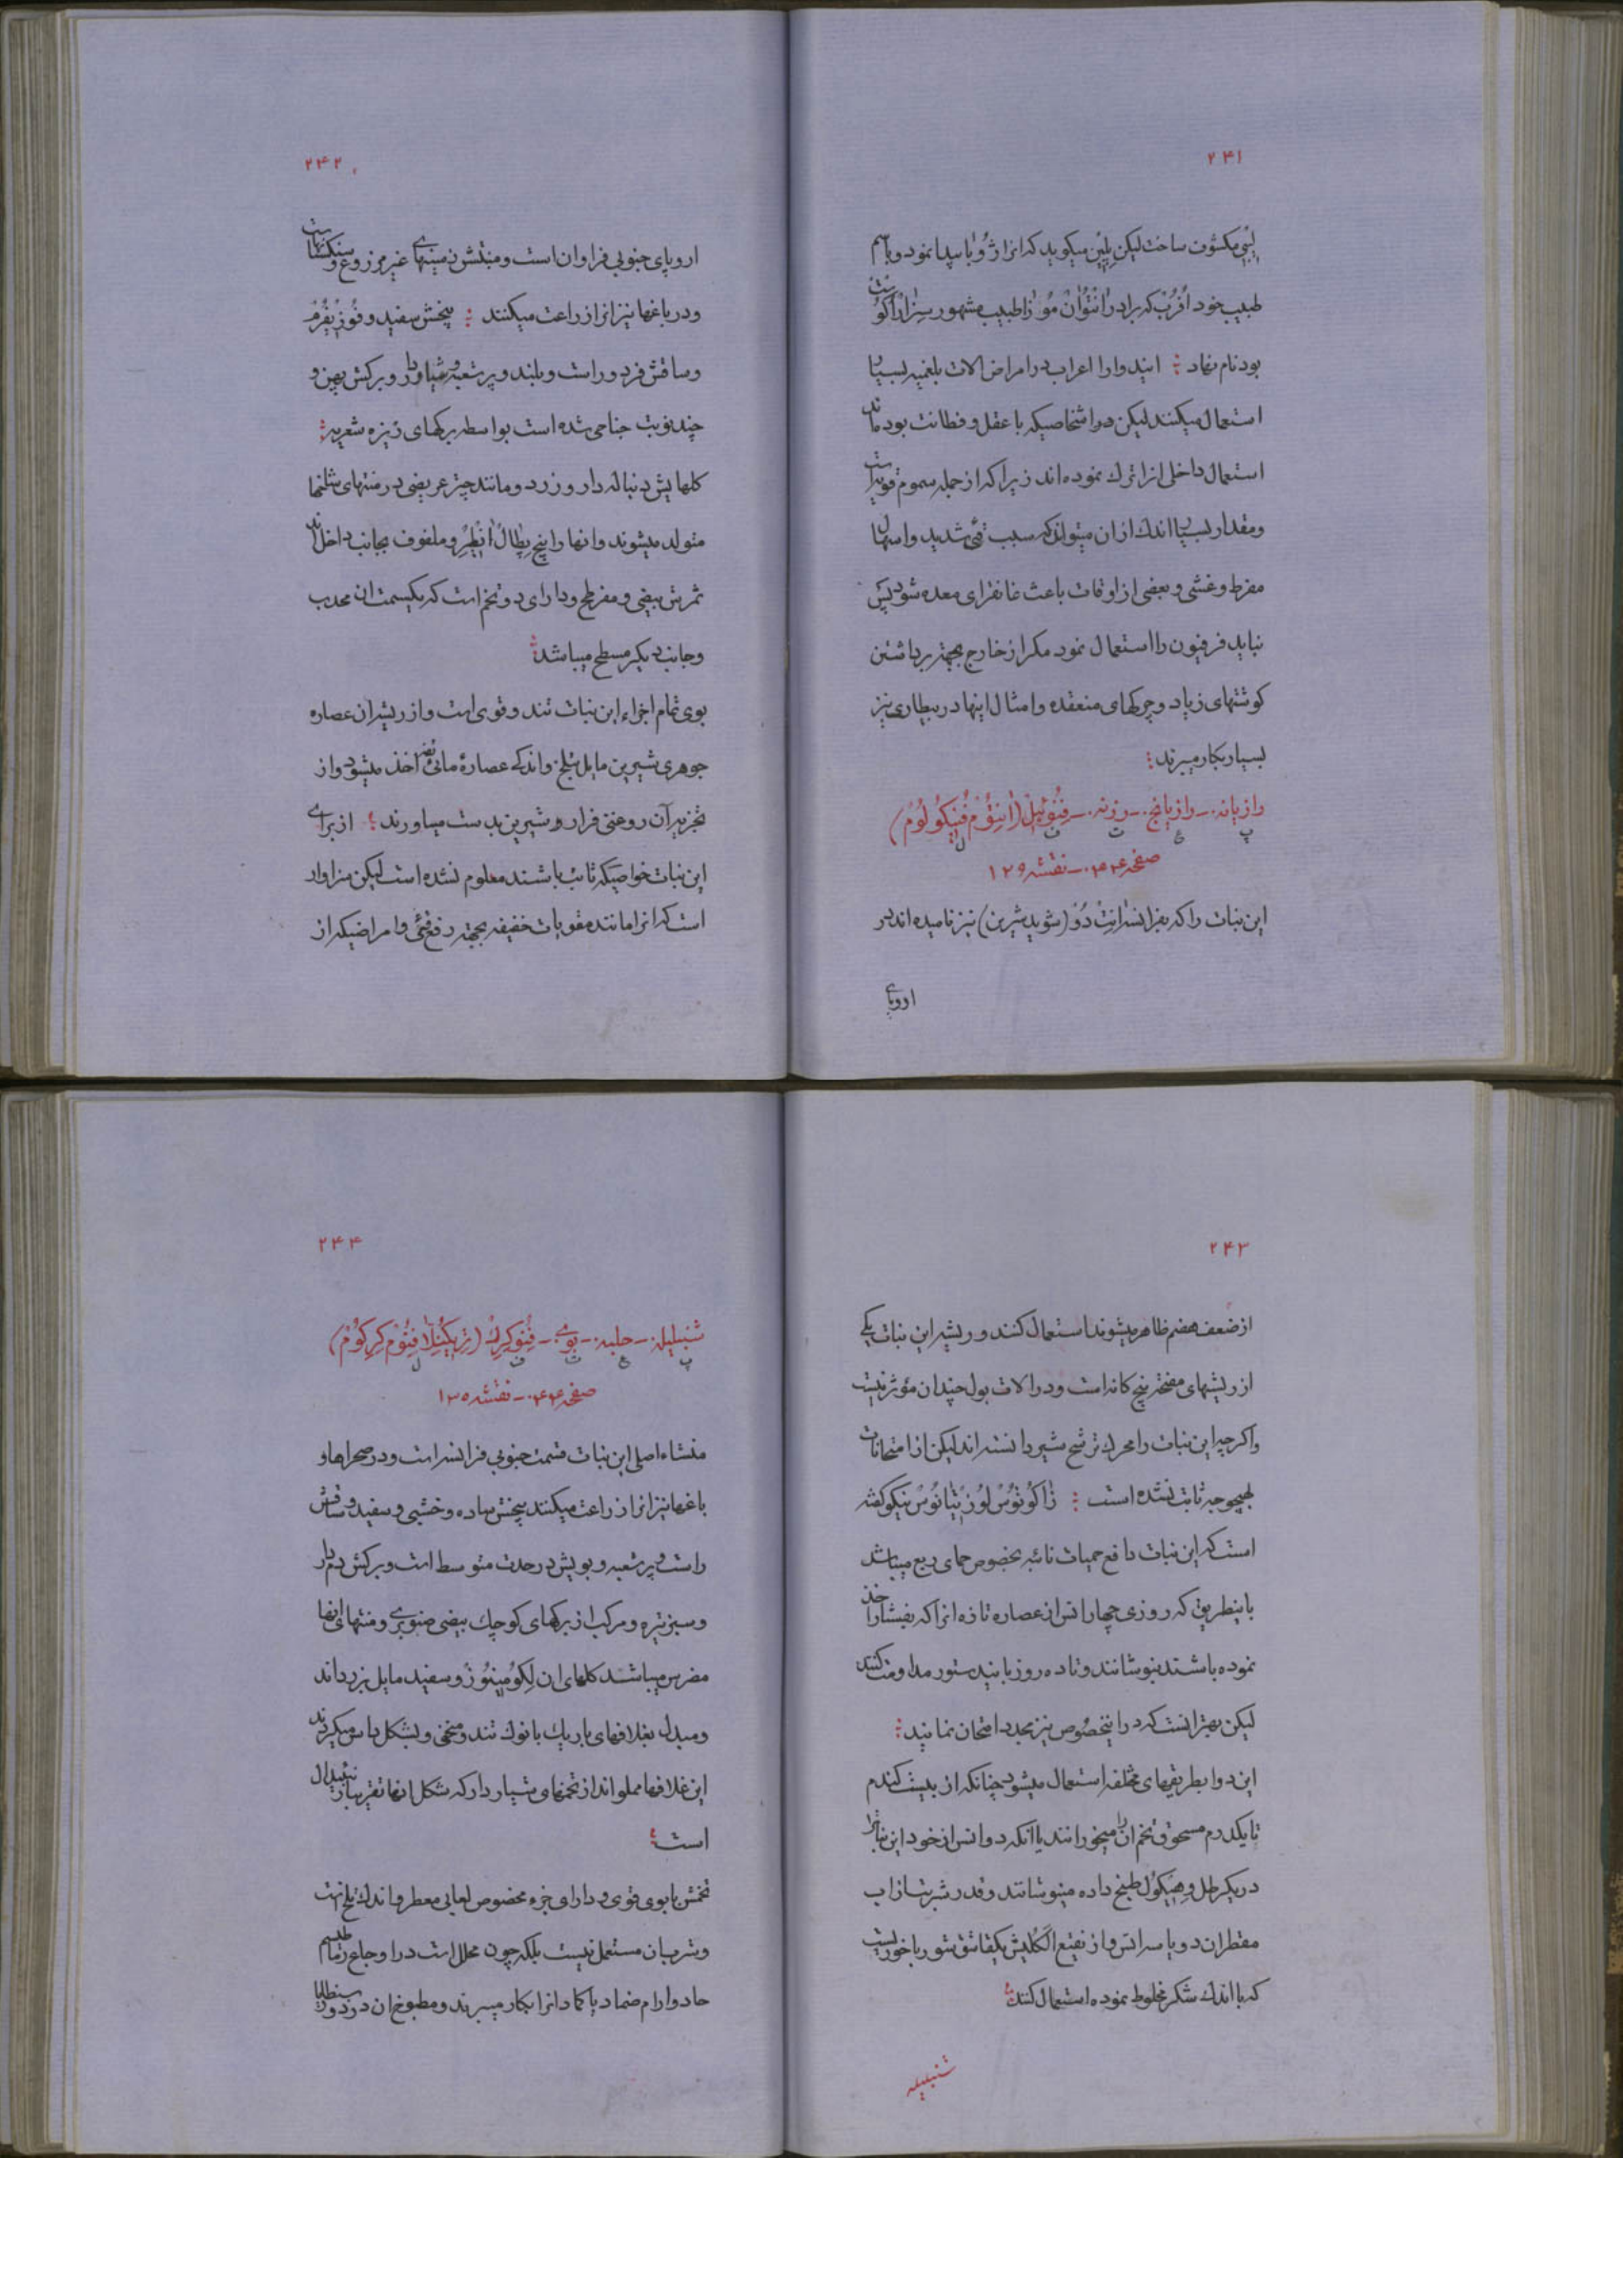 ۲۴۱
لیبی مکشوف ساخت لیکن پلین میگوید که انرا ژوبا پیدا نمود و باسم
طبیب خود افرب که برادر انتوان موزا طبیب مشهور سزار اکوست
بود نام نهاد ؛ ایندوا را اعراب در امراض الات بلغمیه بسیار
استعمال میکنند لیکن در اشخاصیکه با عقل و فطانت بوده‌اند
استعمال داخلی انرا ترك نموده اند زیرا که از جمله سموم قویه است
و مقدار بسیار اندك از ان میتواند که سبب قئی شدید و اسهال
مفرط و غشی و بعضی از اوقات باعث غانقرای معده شود پس
نباید فرفیون را استعمال نمود مکر از خارج بجهة برداشتن
کوشتهای زیاد و چرکهای منعقده و امثال اینها در بیطاری نیز
بسیار بکار میبرند ؛
رازیانه ـ رازیانج ـ رزنه ـ فنوئیل (انتوم فنیکولوم)
پ ع ت ف ل
صفحه ۴۳۰ ـ نقشه ۱۲۹
این نبات را که بفرانسه انت دو (شوید شیرین) نیز نامیده اند در
اروپای
۲۴۲
اروپای جنوبی فراوان است و منبتش زمینهای غیر مزروع و سنکستانها ست
و در باغها نیز انرا زراعت میکنند ؛ بیخش سفید و فوزیفرم
و ساقش فرد و راست و بلند و پر شعبه و شیاردار و برکش پهن و
چند نوبت جناحی شده است بواسطه برکهای ریزه شعریه ؛
کلهایش دنباله دار و زرد و مانند چتر عریضی در منتهای شاخها
متولد میشوند و انها را پنج پطال انطیر و ملفوف بجانب داخل‌اند
ثمرش بیضی و مفرطح و دارای دو تخم است که یکسمت ان محدب
و جانب دیکر مسطح میباشد ؛
بوی تمام اجزاء این نبات تند و قوی است و از ریشه ان عصاره
جوهری شیرین مایل بتلخ و اندکی عصارهٔ مائی نیز اخذ میشود و از
تجزیه آن روغنی فرار و شیرین بدست میاورند ؛ از برای
این نبات خواصیکه ثابت باشند معلوم نشده است لیکن سزاوار
است که انرا مانند مقویات خفیفه بجهة رفع قئی و امراضیکه از
۲۴۳
از ضعف هضم ظاهر میشوند استعمال کنند و ریشه این نبات یکی
از ریشهای مفتحه پنج کانه است و در الات بول چندان مؤثر نیست
و اکرچه این نبات را محرك ترشح شیر دانسته اند لیکن از امتحانات
بهیچوجه ثابت نشده است ؛ ژاکوتوس لوزیتانوس نیکو کفته
است که این نبات دافع حمیات نائبه بخصوص حمای ربع میباشد
باینطریق که روزی چهار انس از عصاره تازه انرا که بفشار اخذ
نموده باشند بنوشانند و تا ده روز بایندستور مداومت کنند
لیکن بهتر انست که در اینخصوص نیز مجدد امتحان نمایند ؛
این دوا بطریقهای مختلفه استعمال میشود چنانکه از بیست کندم
تا یکدرم مسحوق تخم ان را میخورانند یا آنکه دو انس از خود این نبات را
در یکرطل وهیکول طبخ داده مینوشانند و قدر شربت از اب
مقطر ان دو یا سه انس و از نقیع الکلیش یکقاشق شورباخوریست
که با اندك شکر مخلوط نموده استعمال کنند ؛
شنبلیله
۲۴۴
شنبلیله ـ حلبه ـ بوی ـ فنوکرك (تریکنلا فنوم کرکوم)
پ ع ت ف ل
صفحه ۴۴۰ ـ نقشه ۱۳۰
منشاء اصلی این نبات قسمت جنوبی فرانسه است و در صحراها و
باغها نیز انرا زراعت میکنند بیخش ساده و خشبی و سفید و ساقش
راست و پر شعبه و بویش در حدت متوسط است و برکش دم دار
و سبز تیره و مرکب از برکهای کوچك بیضی صنوبری و منتهای انها
مضرس میباشد کلهای ان لکومینوز و سفید مایل بزردی‌اند
و مبدل بغلافهای باریك با نوك تند و منحنی و بشکل داس میکردند
این غلافها مملو اند از تخمهای شیاردار که شکل انها تقریبا
است ؛
تخمش با بوی قوی و دارای جزء مخصوص لعابی معطر و اندك تلخ است
و شرب ان مستعمل نیست بلکه چون محلل است در اوجاع
حاد و اورام ضماد یا کماد انرا بکار میبرند و مطبوخ ان در